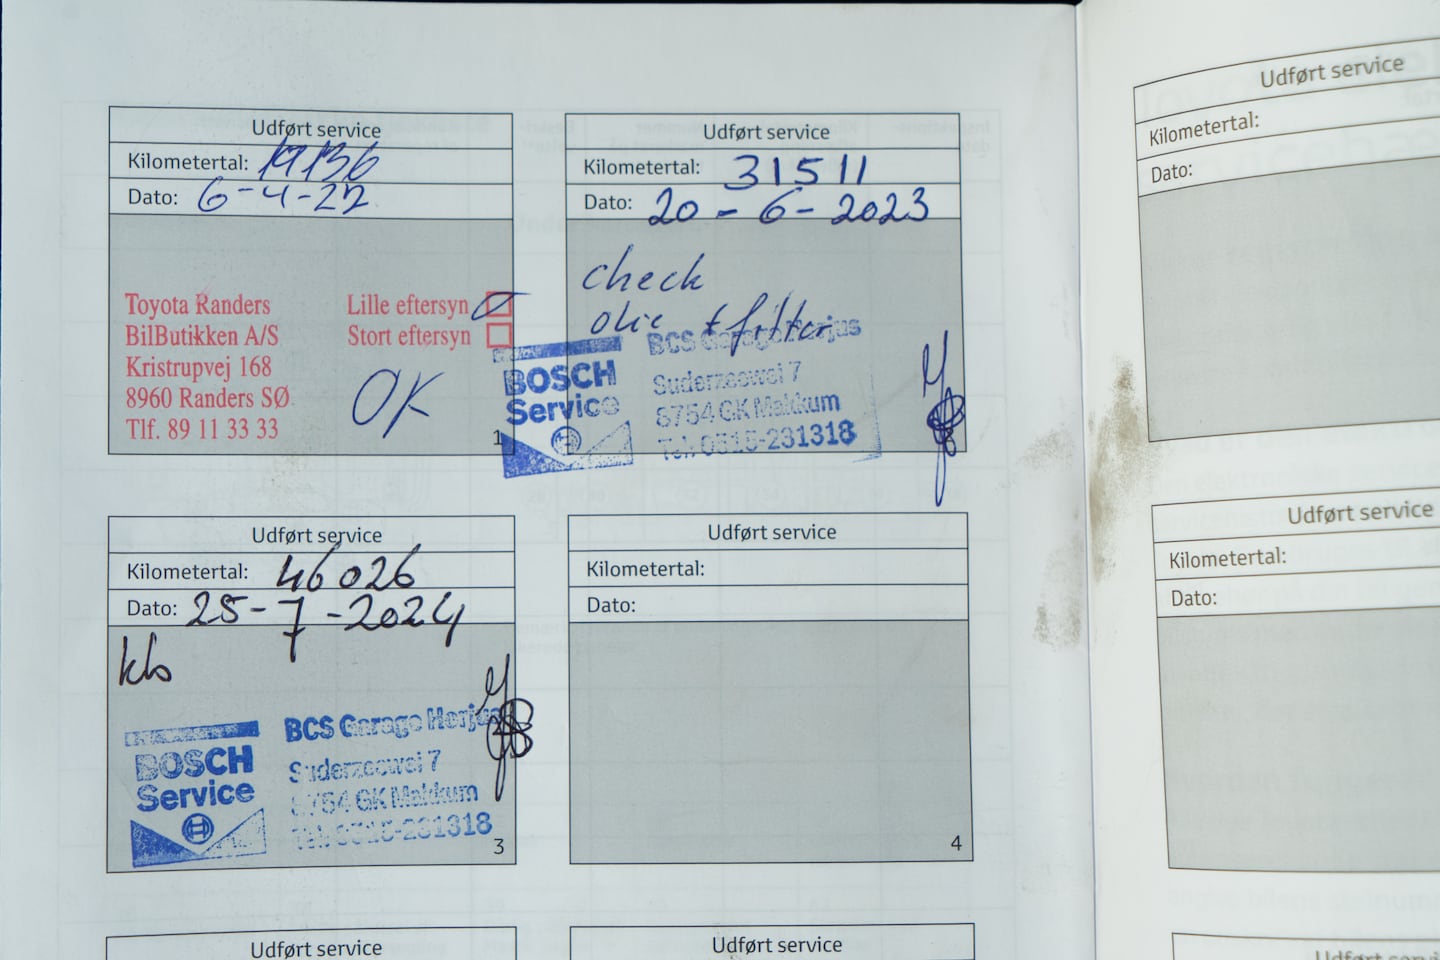 Udført service
Kilometertal: 19136
Dato: 6-4-22
Toyota Randers
BilButikken A/S
Kristrupvej 168
8960 Randers SØ
Tlf. 89 11 33 33
Lille eftersyn
Stort eftersyn
OK
1
Udført service
Kilometertal: 31511
Dato: 20-6-2023
check
olie + filter
BOSCH
Service
BCS Garage Horjus
Suderzeewei 7
8754 GK Makkum
Tel: 0515-231318
Udført service
Kilometertal: 46026
Dato: 25-7-2024
BOSCH
Service
BCS Garage Horjus
Suderzeewei 7
8754 GK Makkum
Tel: 0515-231318
3
Udført service
Kilometertal:
Dato:
4
Udført service
Udført service
Udført service
Kilometertal:
Dato:
Udført service
Kilometertal:
Dato: